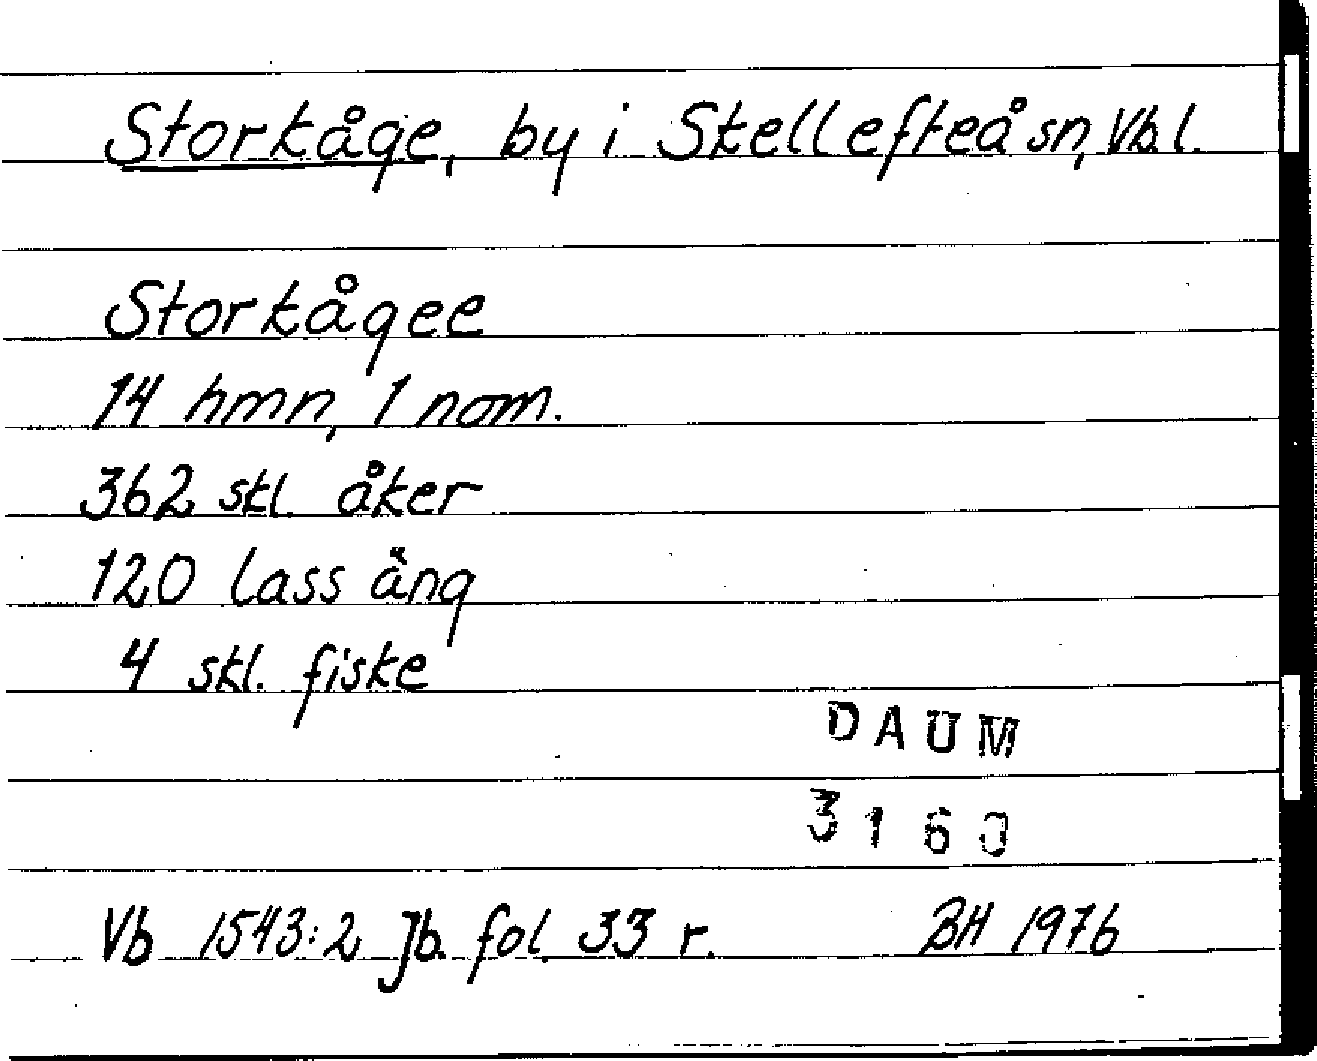 Storkåge, by i Skellefteå sn, Vb l.
Storkågee
14 hmn, 1 nom.
362 skl. åker
120 lass äng
4 skl. fiske
DAUM
3160
Vb 1543:2 Jb. fol. 33 r. BH 1976